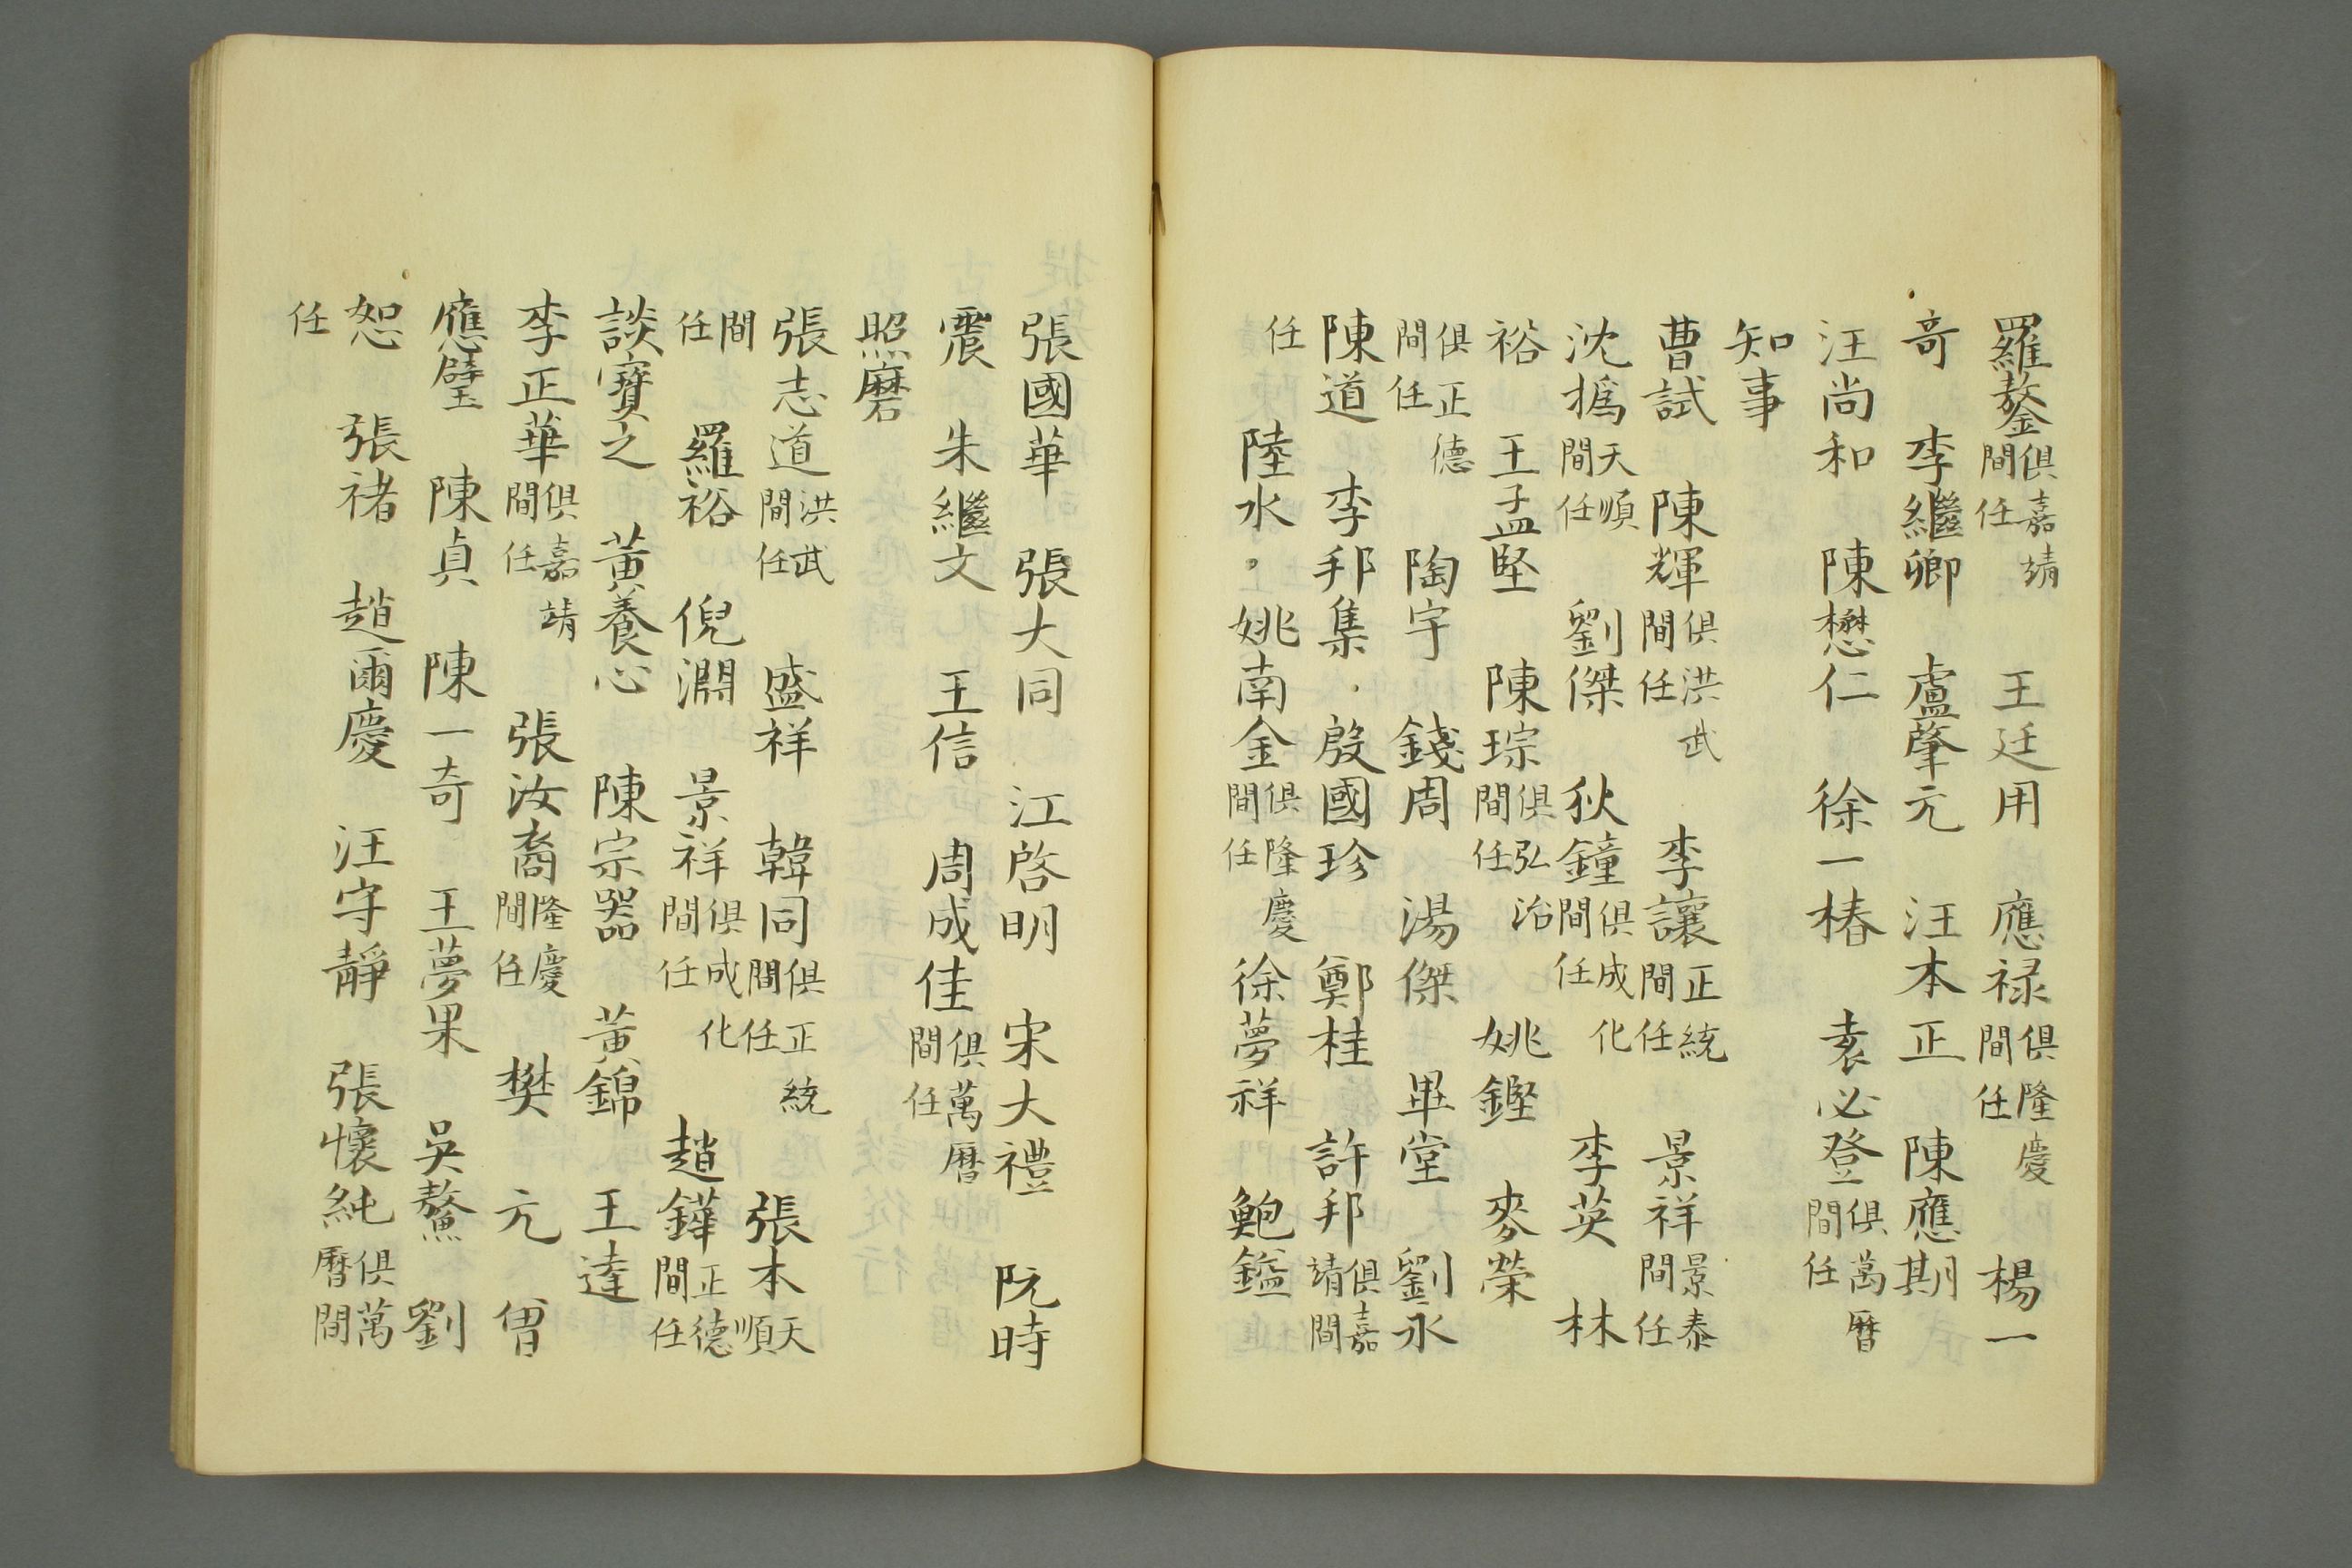 羅鏊俱嘉靖間任　王廷用　應祿俱隆慶間任　楊一
奇　李繼卿　盧肇元　汪本正　陳應期
汪尚和　陳懋仁　徐一椿　袁必登俱萬曆間任
知事
曹試　陳輝俱洪武間任　李讓正統間任　景祥景泰間任
沈撝天順間任　劉傑　狄鐘俱成化間任　李英　林
裕　王孟堅　陳琮俱弘治間任　姚鏗　麥榮
俱正德間任　陶宇　錢周　湯傑　畢堂　劉永
陳道　李邦集　殷國珍　鄭桂　許邦俱嘉靖間
任　陸水　姚南金俱隆慶間任　徐夢祥　鮑鎰
張國華　張大同　江啓明　宋大禮　阮時
震　朱繼文　王信　周成佳俱萬曆間任
照磨
張志道洪武間任　盛祥　韓同俱正統間任　張本天順
間任　羅裕　倪淵　景祥俱成化間任　趙鏵正德間任
談寶之　黃養心　陳宗器　黃錦　王達
李正華俱嘉靖間任　張汝裔隆慶間任　樊元　曾
應璧　陳貞　陳一奇　王夢果　吳鰲　劉
恕　張禇　趙爾慶　汪守靜　張懷純俱萬曆間
任